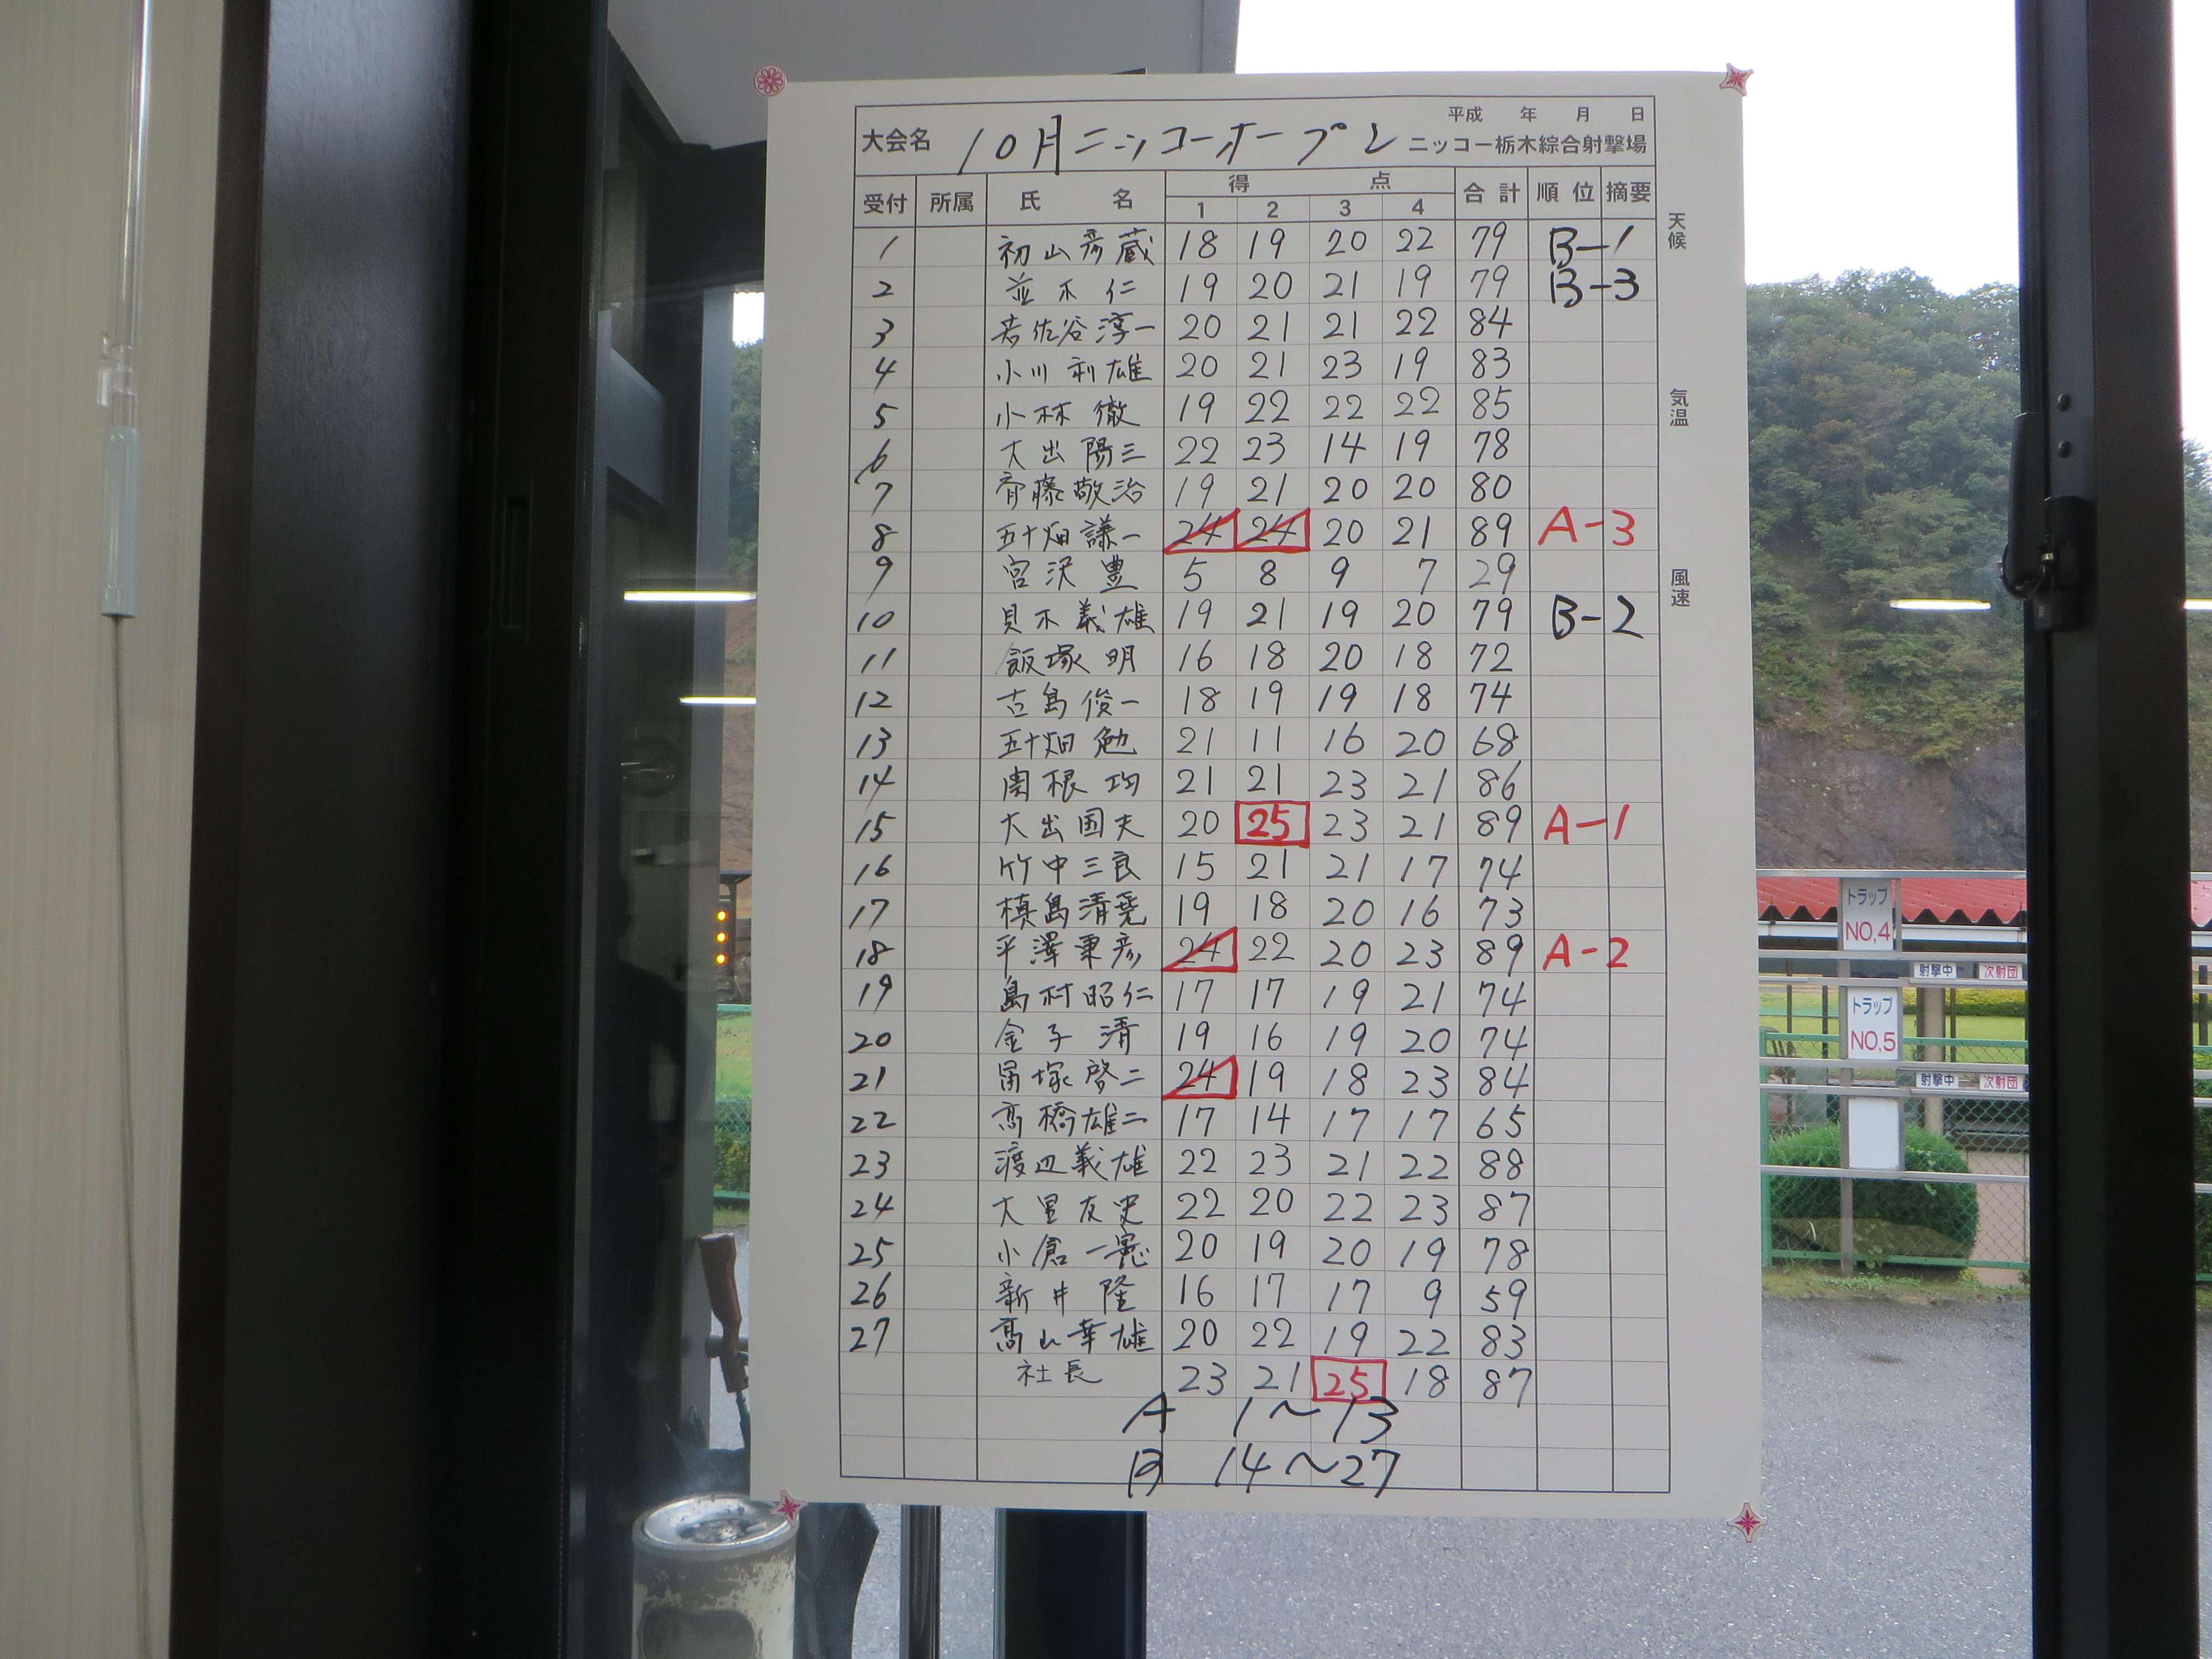 平成 年 月 日
大会名 10月ニッコーオープン ニッコー栃木綜合射撃場
受付 所属 氏名 得点 合計 順位 摘要
1 2 3 4
1 初山彦蔵 18 19 20 22 79 B-1
2 並木仁 19 20 21 19 79 B-3
3 若佐谷淳一 20 21 21 22 84
4 小川利雄 20 21 23 19 83
5 小林徹 19 22 22 22 85
6 大出陽三 22 23 14 19 78
7 斉藤敬治 19 21 20 20 80
8 五十畑謙一 24 24 20 21 89 A-3
9 宮沢豊 5 8 9 7 29
10 貝木義雄 19 21 19 20 79 B-2
11 飯塚明 16 18 20 18 72
12 古島俊一 18 19 19 18 74
13 五十畑勉 21 11 16 20 68
14 関根均 21 21 23 21 86
15 大出国夫 20 25 23 21 89 A-1
16 竹中三良 15 21 21 17 74
17 槙島清尭 19 18 20 16 73
18 平澤秉彦 24 22 20 23 89 A-2
19 島村昭仁 17 17 19 21 74
20 金子清 19 16 19 20 74
21 塚啓二 24 19 18 23 84
22 高橋雄二 17 14 17 17 65
23 渡辺義雄 22 23 21 22 88
24 大友史 22 20 22 23 87
25 小倉一 20 19 20 19 78
26 新井隆 16 17 17 9 59
27 髙山幸雄 20 22 19 22 83
社長 23 21 25 18 87
A 1〜13
B 14〜27
天候
気温
風速
トラップ
NO,4
射撃中 次射団
トラップ
NO,5
射撃中 次射団